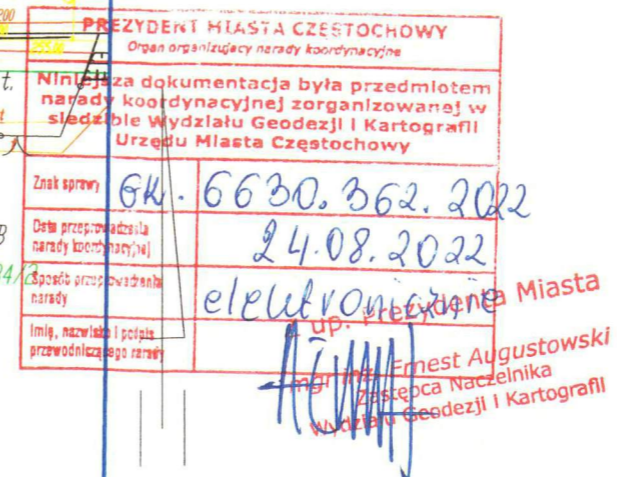 200
PREZYDENT MIASTA CZĘSTOCHOWY
Organ organizujący narady koordynacyjne
255.00
t.
Niniejsza dokumentacja była przedmiotem
narady koordynacyjnej zorganizowanej w
siedzibie Wydziału Geodezji i Kartografii
Urzędu Miasta Częstochowy
Znak sprawy GK. 6630.362.2022
B
Data przeprowadzenia
narady koordynacyjnej 24.08.2022
Sposób przeprowadzenia
narady elektronicznie
up. Prezydenta Miasta
Imię, nazwisko i podpis
przewodniczącego narady
mgr inż. Ernest Augustowski
Zastępca Naczelnika
Wydziału Geodezji i Kartografii